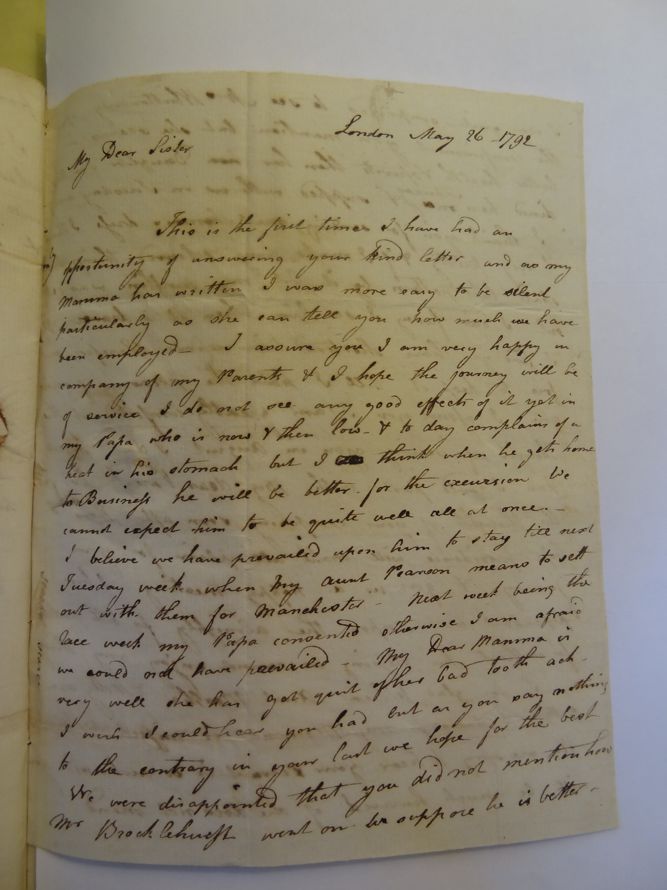 London May 26 - 1792
My Dear Sister
This is the first time I have had an
opportunity of answering your kind letter and as my
Mamma has written I was more easy to be silent
particularly as she can tell you how much we have
been employed - I assure you I am very happy in
company of my Parents & I hope the journey will be
of service I do not see any good effects of it yet in
my Papa who is now & then low - & to day complains of a
heat in his stomach but I think when he gets home
to Business he will be better for the excursion We
cannot expect him to be quite well all at once. -
I believe we have prevailed upon him to stay till next
Tuesday week when my aunt Pearson means to sett
out with them for Manchester - Next week being the
race week my Papa consented otherwise I am afraid
we could not have prevailed - My Dear Mamma is
very well she has got quit of her bad tooth ach -
I wish I could hear you had but as you say nothing
to the contrary in your last we hope for the best
We were disappointed that you did not mention how
Mr Brocklehurst went on we suppose he is better -